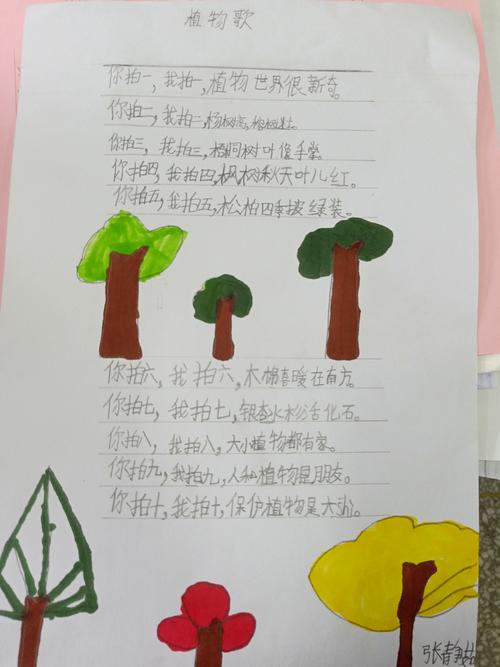 植物歌
你拍一，我拍一，植物世界很新奇。
你拍二，我拍二，杨树高，榕树壮。
你拍三，我拍三，梧桐树叶像手掌。
你拍四，我拍四，枫树秋天叶儿红。
你拍五，我拍五，松柏四季披绿装。
你拍六，我拍六，木棉喜暖在南方。
你拍七，我拍七，银杏水杉活化石。
你拍八，我拍八，大小植物都有家。
你拍九，我拍九，人和植物是朋友。
你拍十，我拍十，保护植物是大
张静